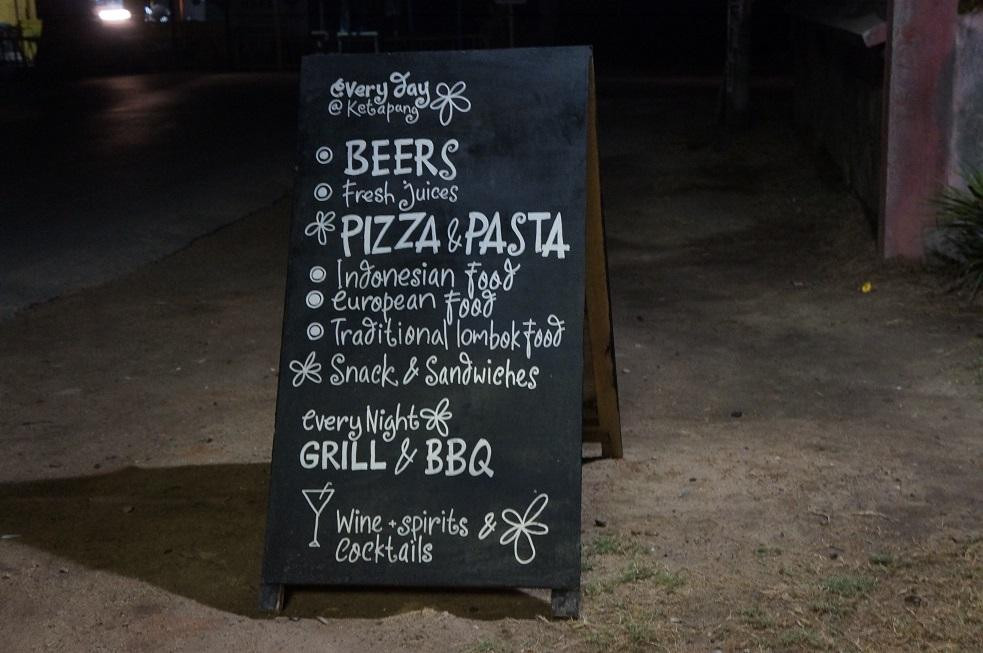 every day
@ Ketapang
BEERS
Fresh Juices
PIZZA & PASTA
Indonesian food
European food
Traditional lombok food
Snack & Sandwiches
every Night
GRILL & BBQ
Wine + spirits &
Cocktails